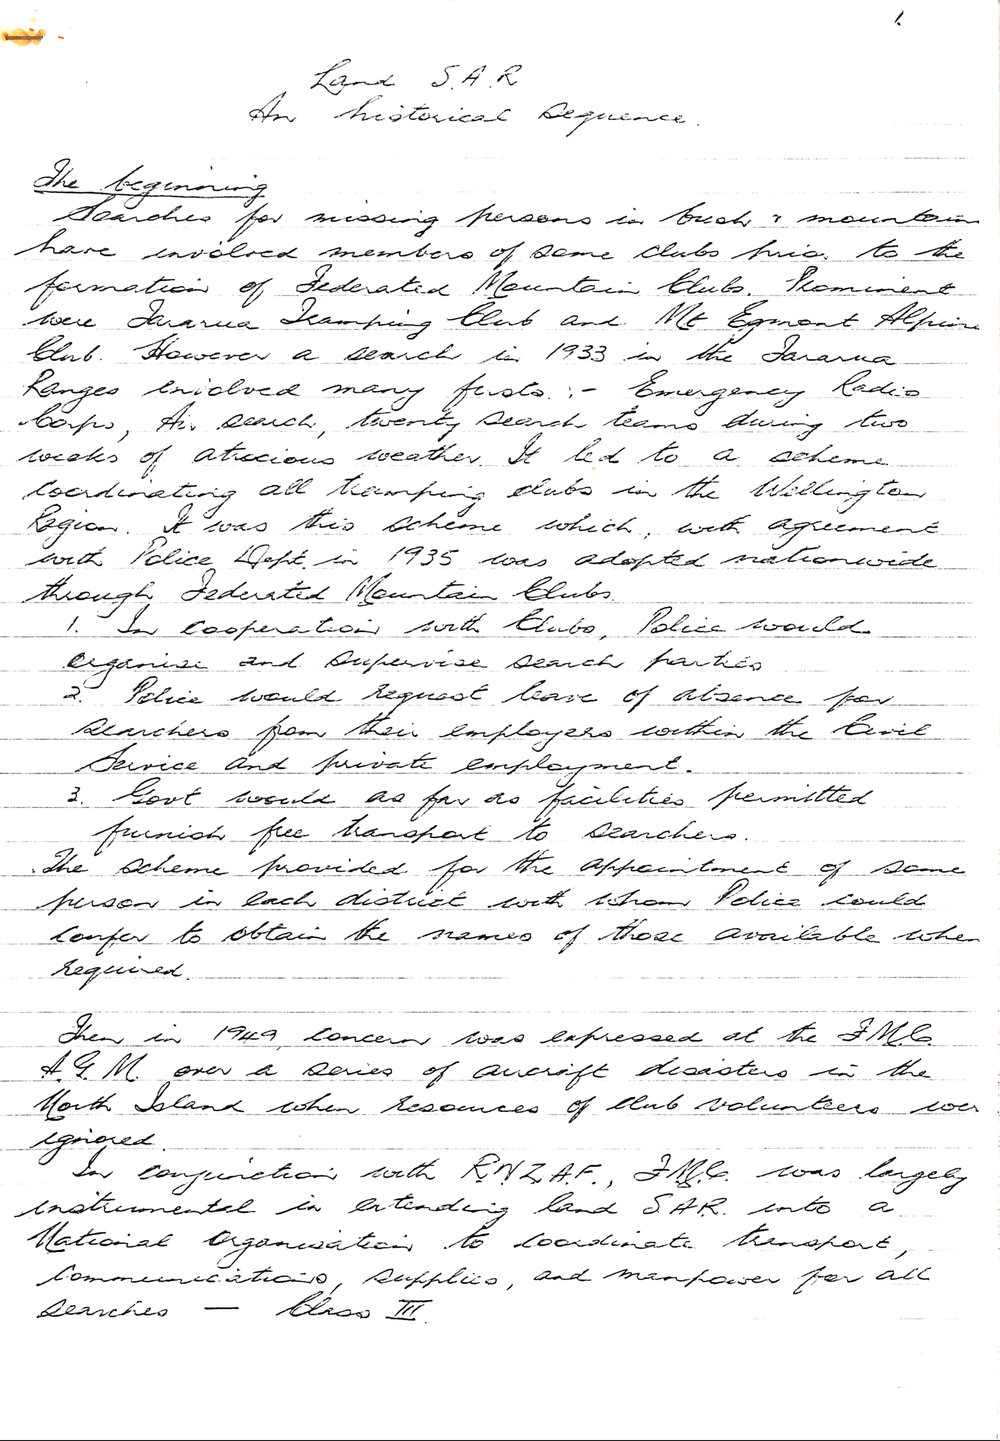 1.
Land S.A.R
An historical sequence.
The beginning
Searches for missing persons in bush & mountain
have involved members of some clubs prior to the
formation of Federated Mountain Clubs. Prominent
were Tararua Tramping Club and Mt Egmont Alpine
Club. However a search in 1933 in the Tararua
Ranges involved many firsts :- Emergency Radio
Corps, Air search, twenty search teams during two
weeks of atrocious weather. It led to a scheme
coordinating all tramping clubs in the Wellington
Region. It was this scheme which, with agreement
with Police Dept. in 1935 was adopted nationwide
through Federated Mountain Clubs.
1. In cooperation with Clubs, Police would
organise and supervise search parties
2. Police would request leave of absence for
searchers from their employers within the Civil
Service and private employment.
3. Govt would as far as facilities permitted
furnish free transport to searchers.
The scheme provided for the appointment of some
person in each district with whom Police could
confer to obtain the names of those available when
required.
Then in 1949, concern was expressed at the F.M.C.
A.G.M. over a series of aircraft disasters in the
North Island when resources of club volunteers were
ignored.
In conjunction with R.N.Z.A.F., F.M.C. was largely
instrumental in extending land S.A.R. into a
National Organisation to coordinate transport,
communications, supplies, and manpower for all
searches — Class III.